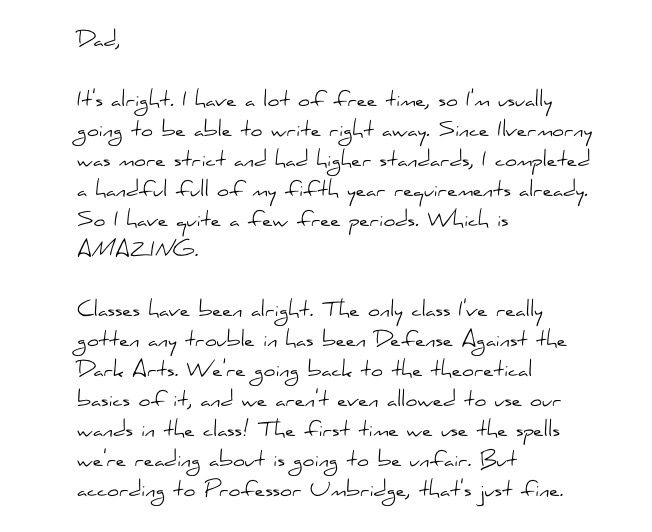 Dad,
It's alright. I have a lot of free time, so I'm usually
going to be able to write right away. Since Ilvermorny
was more strict and had higher standards, I completed
a handful full of my fifth year requirements already.
So I have quite a few free periods. Which is
AMAZING.
Classes have been alright. The only class I've really
gotten any trouble in has been Defense Against the
Dark Arts. We're going back to the theoretical
basics of it, and we aren't even allowed to use our
wands in the class! The first time we use the spells
we're reading about is going to be unfair. But
according to Professor Umbridge, that's just fine.